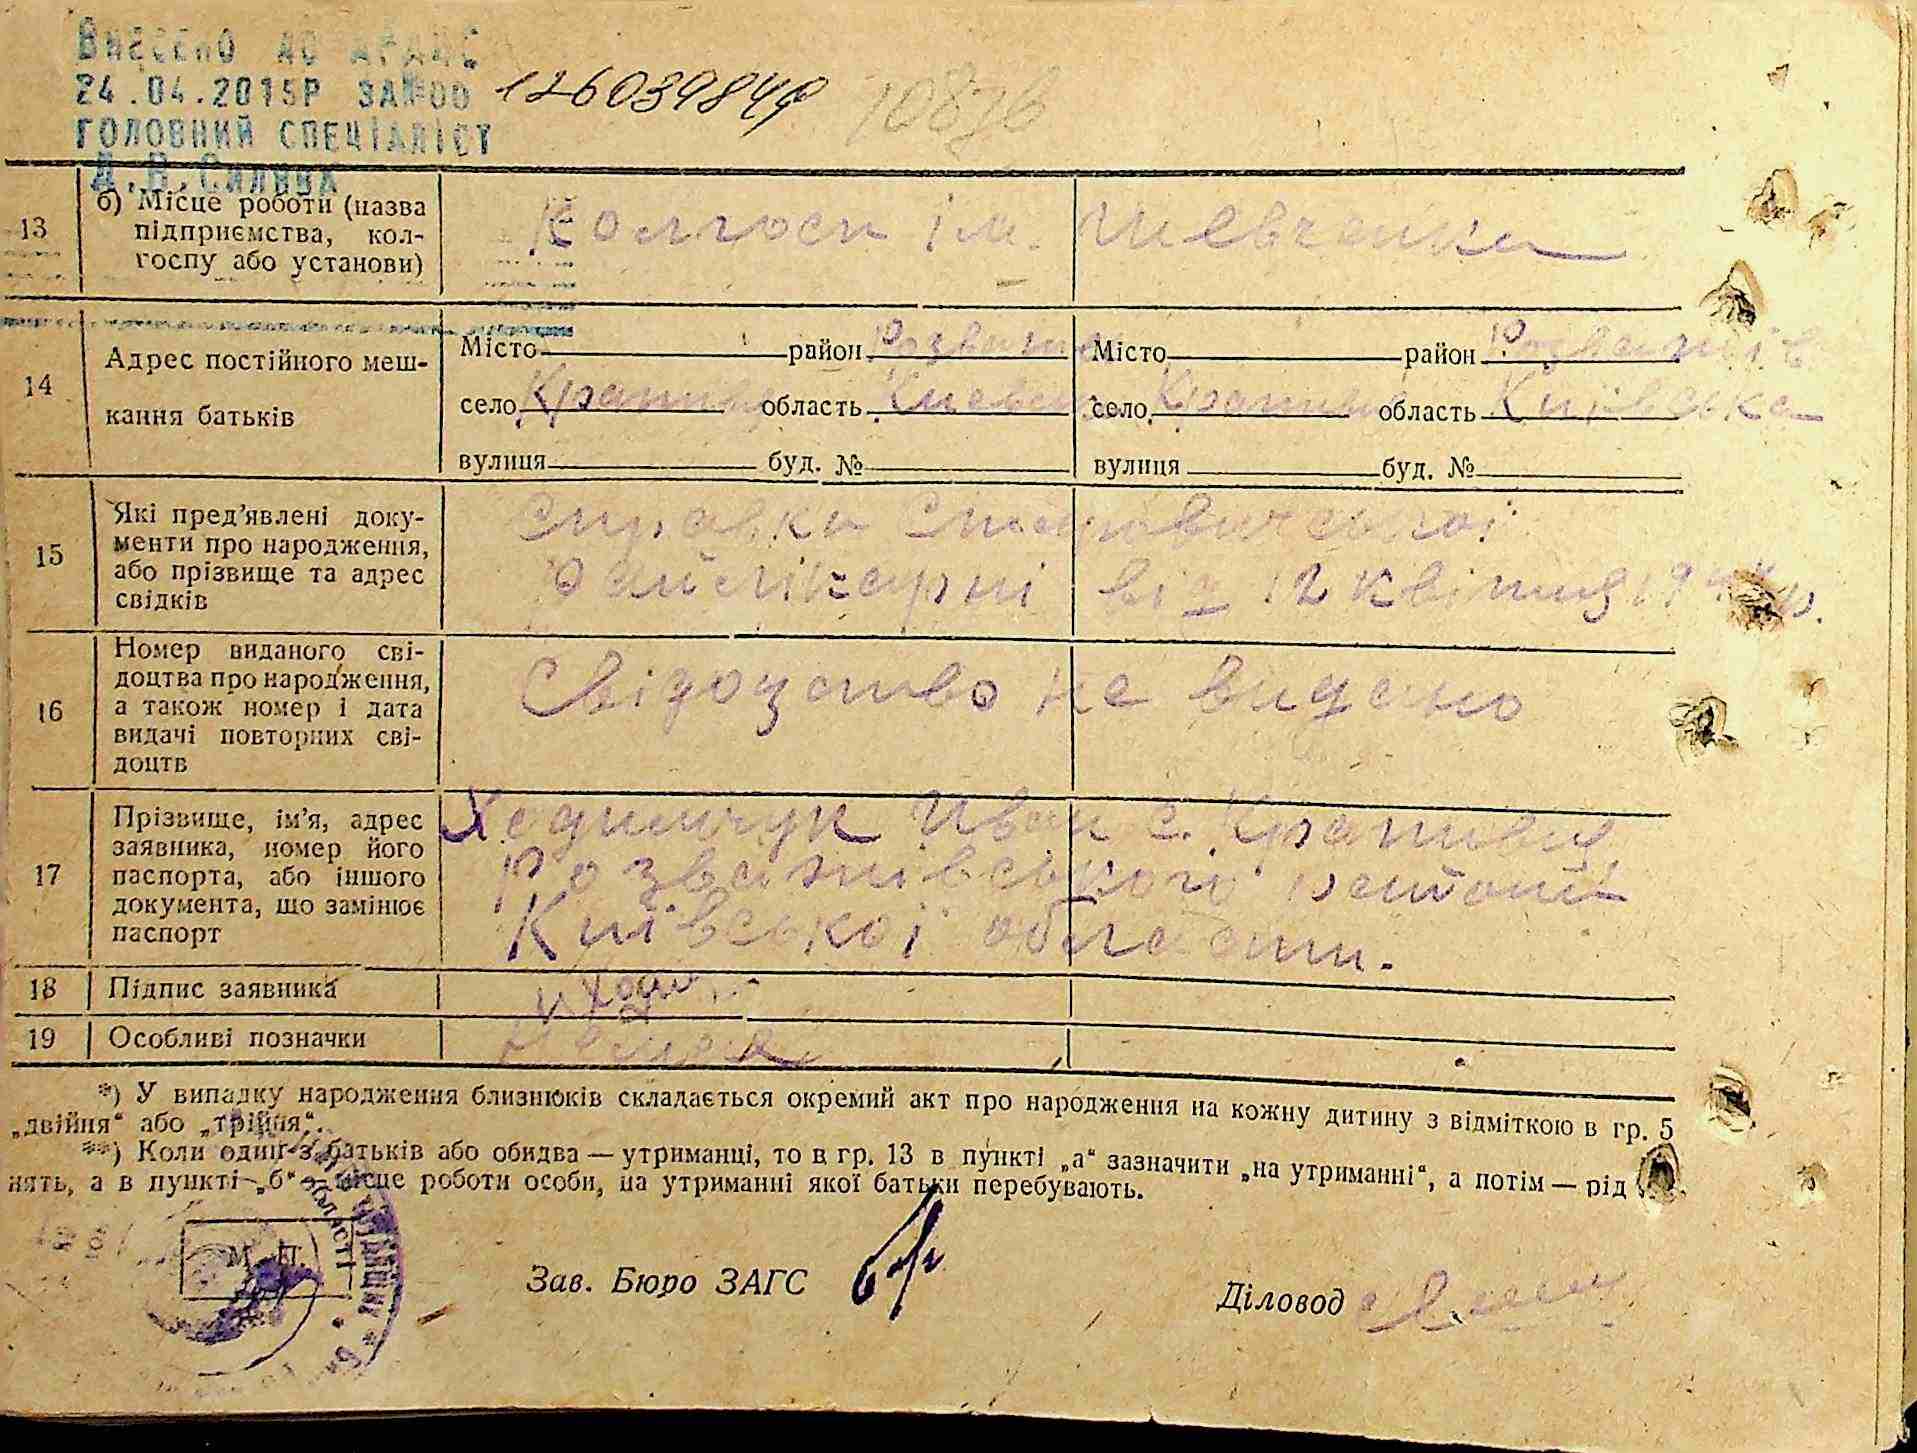 Внесено до АРАЦС
24.04.2015Р ЗА№00 126039849
ГОЛОВНИЙ СПЕЦІАЛІСТ 10876
13 б) Місце роботи (назва підприємства, колгоспу або установи) Колгосп ім. Шевченка
14 Адрес постійного мешкання батьків
Місто район Розваж Місто район Розважів
село Крапивня область Киевськ село Крапивня область Київська
вулиця буд. № вулиця буд. №
15 Які пред’явлені документи про народження, або прізвище та адрес свідків
Справка
райлікарні від 12 квітня 1944 р.
16 Номер виданого свідоцтва про народження, а також номер і дата видачі повторних свідоцтв
Свідоцтво не видано
17 Прізвище, ім’я, адрес заявника, номер його паспорта, або іншого документа, що замінює паспорт
Ходимчук Иван с. Крапивня
Розважівського района
Київської области.
18 Підпис заявника
19 Особливі позначки
*) У випадку народження близнюків складається окремий акт про народження на кожну дитину з відміткою в гр. 5
„двійня“ або „трійня“.
**) Коли один з батьків або обидва — утриманці, то в гр. 13 в пункті „а“ зазначити „на утриманні“, а потім — рід
нять, а в пункті „б“ місце роботи особи, на утриманні якої батьки перебувають.
М. П.
Зав. Бюро ЗАГС Діловод